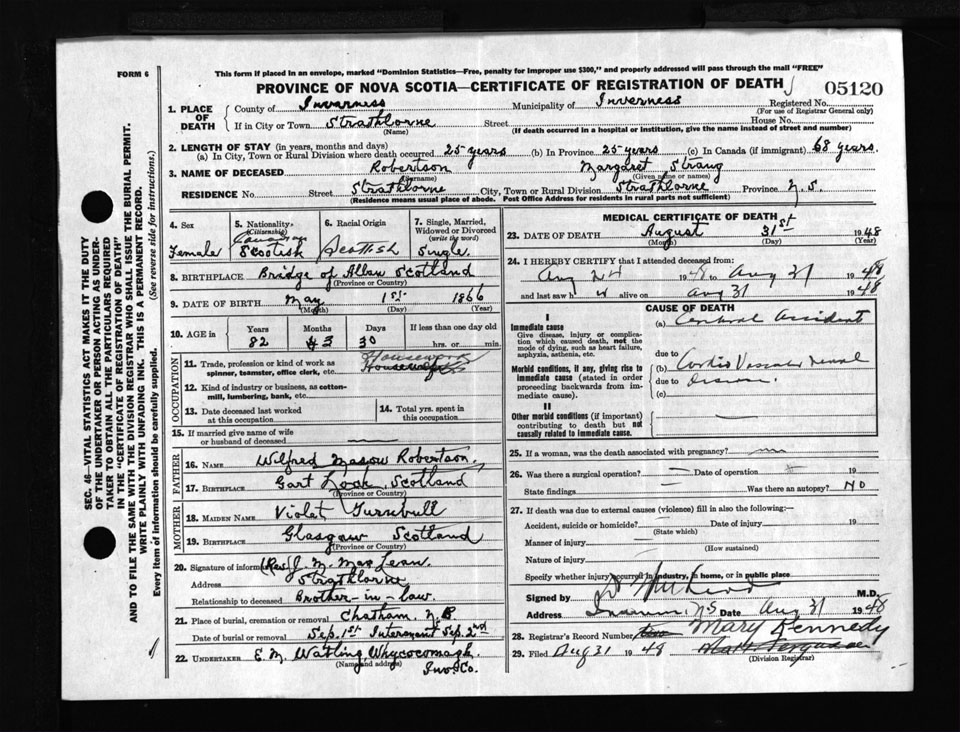 FORM 6
This form if placed in an envelope, marked "Dominion Statistics—Free, penalty for improper use $300," and properly addressed will pass through the mail "FREE"
PROVINCE OF NOVA SCOTIA—CERTIFICATE OF REGISTRATION OF DEATH
05120
1. PLACE OF DEATH
County of Inverness Municipality of Inverness Registered No.
(For use of Registrar General only)
If in City or Town Strathlorne Street House No.
(Name) (If death occurred in a hospital or institution, give the name instead of street and number)
2. LENGTH OF STAY (in years, months and days)
(a) In City, Town or Rural Division where death occurred 25 years (b) In Province 25 years (c) In Canada (if immigrant) 68 years.
3. NAME OF DECEASED Robertson Margaret Strang
(Surname) (Given name or names)
RESIDENCE No. Street Strathlorne City, Town or Rural Division Strathlorne Province N.S.
(Residence means usual place of abode. Post Office Address for residents in rural parts not sufficient)
4. Sex
Female
5. Nationality (Citizenship)
Canadian
Scotish
6. Racial Origin
Scottish
7. Single, Married, Widowed or Divorced (write the word)
Single
8. BIRTHPLACE Bridge of Allan Scotland
(Province or Country)
9. DATE OF BIRTH May 1st 1866
(Month) (Day) (Year)
10. AGE in
Years Months Days If less than one day old
82 3 30 hrs. or min.
OCCUPATION
11. Trade, profession or kind of work as spinner, teamster, office clerk, etc. Housework
Housewife
12. Kind of industry or business, as cotton-mill, lumbering, bank, etc.
13. Date deceased last worked at this occupation
14. Total yrs. spent in this occupation
15. If married give name of wife or husband of deceased —
FATHER
16. NAME Wilfred Robertson
17. BIRTHPLACE Gart Scotland
(Province or Country)
MOTHER
18. MAIDEN NAME Violet Turnbull
19. BIRTHPLACE Glasgow Scotland
(Province or Country)
20. Signature of informant (Rev) J. M. MacLean
Address Strathlorne
Relationship to deceased Brother-in-law.
21. Place of burial, cremation or removal Chatham, N.B
Date of burial or removal Sep. 1st Interment Sep. 2nd
22. UNDERTAKER E. M. Watling Whycocomagh
(Name and address) Inv. Co.
MEDICAL CERTIFICATE OF DEATH
23. DATE OF DEATH August 31st 1948
(Month) (Day) (Year)
24. I HEREBY CERTIFY that I attended deceased from:
Aug 24 1948 to Aug 31 1948
and last saw h alive on Aug 31 1948
CAUSE OF DEATH
I
Immediate cause
Give disease, injury or complication which caused death, not the mode of dying, such as heart failure, asphyxia, asthenia, etc.
(a) Cerebral accident
due to
Morbid conditions, if any, giving rise to immediate cause (stated in order proceeding backwards from immediate cause).
(b) Cardio Vascular Renal
due to disease.
(c)
II
Other morbid conditions (if important) contributing to death but not causally related to immediate cause.
—
25. If a woman, was the death associated with pregnancy?
26. Was there a surgical operation? — Date of operation 19
State findings — Was there an autopsy? NO
27. If death was due to external causes (violence) fill in also the following:—
Accident, suicide or homicide? — Date of injury 19
(State which)
Manner of injury —
(How sustained)
Nature of injury
Specify whether injury occurred in industry, in home, or in public place
Signed by M.D.
Address NS Date Aug 31 1948
28. Registrar's Record Number Mary Kennedy
29. Filed Aug 31 1948
(Division Registrar)
SEC. 46—VITAL STATISTICS ACT MAKES IT THE DUTY
OF THE UNDERTAKER OR PERSON ACTING AS UNDER-
TAKER TO OBTAIN ALL THE PARTICULARS REQUIRED
IN THE "CERTIFICATE OF REGISTRATION OF DEATH"
AND TO FILE THE SAME WITH THE DIVISION REGISTRAR WHO SHALL ISSUE THE BURIAL PERMIT.
WRITE PLAINLY WITH UNFADING INK. THIS IS A PERMANENT RECORD.
Every item of information should be carefully supplied. (See reverse side for instructions.)